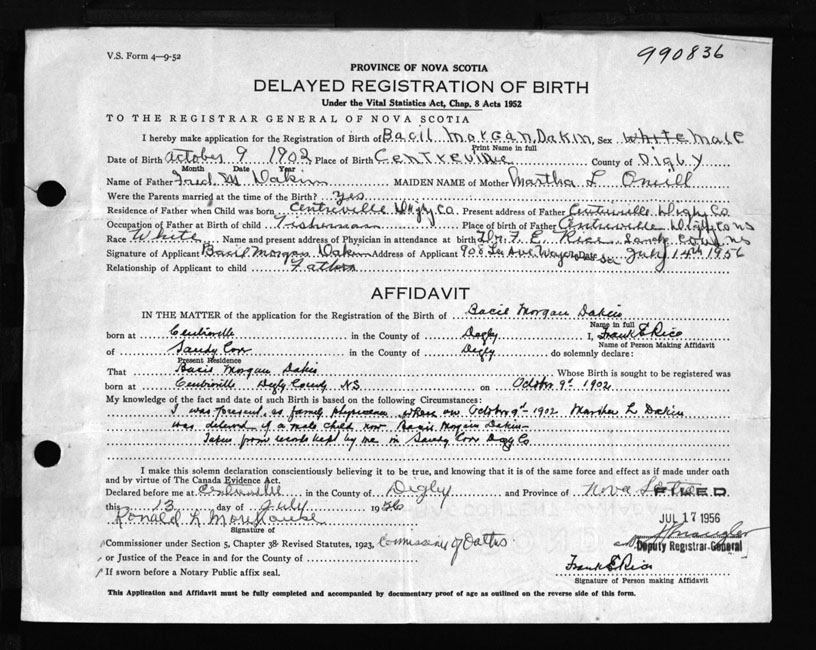 V.S. Form 4—9-52
990836
PROVINCE OF NOVA SCOTIA
DELAYED REGISTRATION OF BIRTH
Under the Vital Statistics Act, Chap. 8 Acts 1952
TO THE REGISTRAR GENERAL OF NOVA SCOTIA
I hereby make application for the Registration of Birth of Bacil Morgan Dakin, Sex white Male
Print Name in full
Date of Birth October 9 1902 Place of Birth Centreville County of Digby
Month Date Year
Name of Father Fred M Dakin MAIDEN NAME of Mother Martha L Oneill
Were the Parents married at the time of the Birth? Yes
Residence of Father when Child was born Centreville Digby Co Present address of Father Centreville Digby Co
Occupation of Father at Birth of child Fisherman Place of birth of Father Centreville Digby Co NS
Race White Name and present address of Physician in attendance at birth Dr. F. E. Rice Sandy Cove NS
Signature of Applicant Bacil Morgan Dakin Address of Applicant 908 Ave Date July 14th 1956
Relationship of Applicant to child Father
AFFIDAVIT
IN THE MATTER of the application for the Registration of Birth of Bacil Morgan Dakin
Name in full
born at Centreville in the County of Digby I, Frank E Rice
Name of Person Making Affidavit
of Sandy Cove in the County of Digby do solemnly declare:
Present Residence
That Bacis Morgan Dakin Whose Birth is sought to be registered was
born at Centreville Digby County NS on October 9th 1902
My knowledge of the fact and date of such Birth is based on the following Circumstances:
I was present as family physician where on October 9th 1902 Martha L Dakin
was delivered of a male child now Bacis Morgan Dakin
Taken from records kept by me in Sandy Cove Digby Co
I make this solemn declaration conscientiously believing it to be true, and knowing that it is of the same force and effect as if made under oath
and by virtue of The Canada Evidence Act.
Declared before me at Centreville in the County of Digby and Province of Nova Scotia
FILED
this 13 day of July 1956
JUL 17 1956
Ronald L Morehouse
Signature of
Commissioner under Section 5, Chapter 38 Revised Statutes, 1923, Commissioner of Oaths
Deputy Registrar-General
or Justice of the Peace in and for the County of
Frank E Rice
If sworn before a Notary Public affix seal.
Signature of Person making Affidavit
This Application and Affidavit must be fully completed and accompanied by documentary proof of age as outlined on the reverse side of this form.